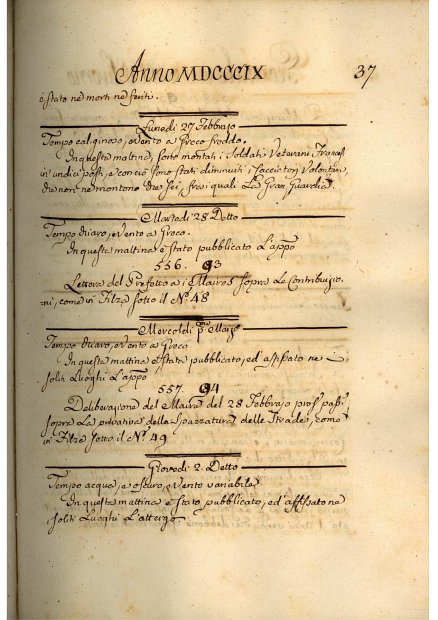 Anno MDCCCIX 37
è stato ne morti ne feriti.
Lunedi 27 Febbrajo
Tempo caliginoso, e Vento a Greco freddo.
In questa mattina, sono montati i Soldati Veterani Francesi
in undici posti, e con ciò sono stati diminuiti i faccioton Volontari,
che non ne montono che sei, fra i quali La Gran Guardia
Martedi 28 Detto
Tempo chiaro, e Vento a Greco.
In questa mattina è stato pubblicato L'appo
556. 93
Lettera del Prefetto a i Maires sopra Le Contribuzio-
ni, come in Filza sotto il N.º 48
Mercoldi p.mo Marzo
Tempo chiaro, e Vento a Greco
In questa mattina è stata pubblicato, ed affissato ne
soliti Luoghi L'appo
557. 94
Deliberazione del Maire del 28 Febbrajo pros.º pass.º
sopra La privativa della Spazzatura delle Strade, come
in Filza sotto il N.º 49
Giovedi 2. Detto
Tempo acqua, e oscuro, e Vento variabile
In questa mattina è stato pubblicato, ed affissato ne
soliti Luoghi L'attergo.